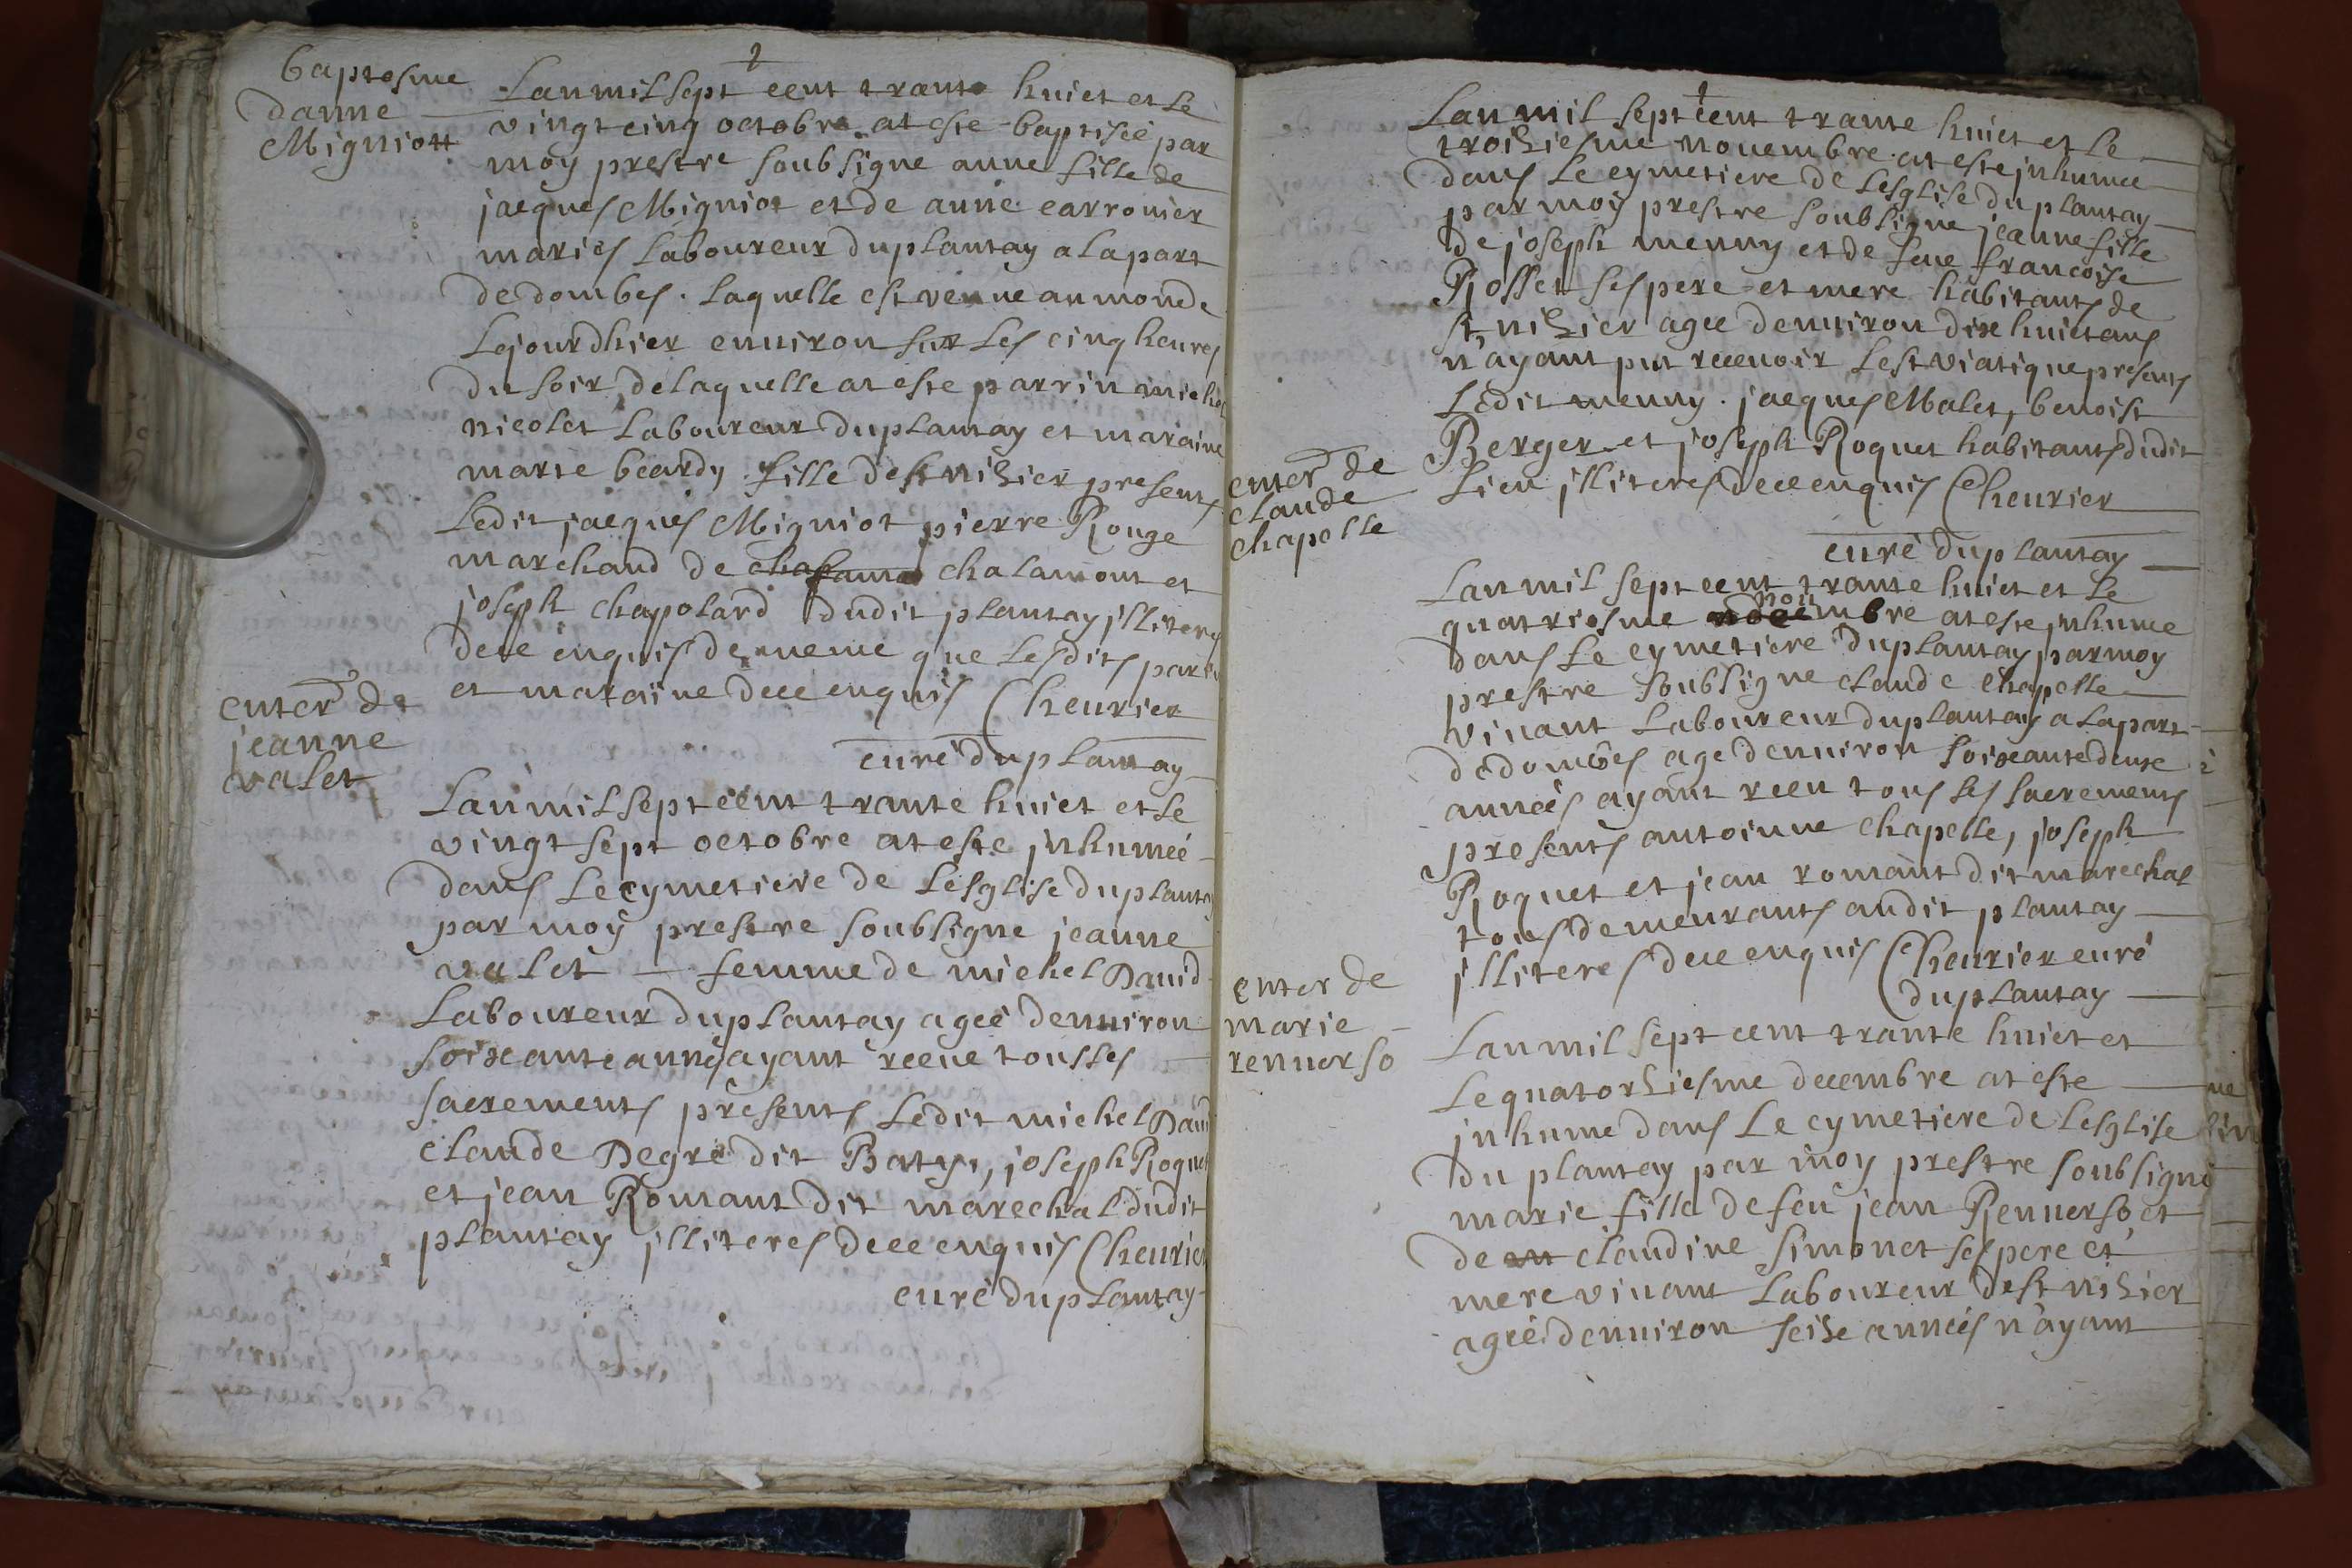 baptesme
danne
Migniott
Lan mil sept cent trante huict et le
vingt cinq octobre at este baptiseé par
moy prestre soubsigne anne fille de
jacques Migniot et de anne carronier
mariés laboureur du plantay a la part
de dombes. laquelle est venue au monde
le jourdhier enuiron sur les cinq heures
du soir, de laquelle at este parrin michel
nicolet laboureur du plantay et maraine
marie beardy fille de st nisier presents
ledit jacques Migniot pierre Rouge
marchand de chalamont et
joseph chapolard dudit plantay jlliteres
de ce enquis de meme que lesdits parin
et maraine de ce enquis Cheurier
curé du plantay
enterr de
jeanne
valet
Lan mil sept cent trante huict et le
vingt sept octobre at este jnhumeé
dans le cymetiere de lesglise du plantay
par moy prestre soubsigne jeanne
valet femme de michel Dauid
laboureur du plantay ageé denuiron
soixante anneés ayant receue tous les
sacrements presents ledit michel Dauid
claude Degre dit Baty, joseph Roquet
et jean Romant dit marechal dudit
plantay jlliteres de ce enquis Cheurier
curé du plantay
Lan mil sept cent trante huict et le
troisiesme nouembre at este jnhumee
dans le cymetiere de lesglise du plantay
par moy prestre soubsigne jeanne fille
de joseph menny et de feue francoise
Rosset ses pere et mere habitants de
st nisier agee denuiron dixe huict ans
n'ayant put receuoir le st viatique presents
ledit menny. jacques Malet, benoist
Berger et joseph Roquet habitants dudit
lieu jlliteres de ce enquis Cheurier
curé du plantay
enterr de
claude
chapelle
Lan mil sept cent trante huict et le
quatriesme nouembre at este jnhume
dans le cymetiere du plantay par moy
prestre soubsigne claude chapelle
viuant laboureur du plantay a la part
de dombes age denuiron soixante deuxe
anneés ayant receu tous les sacrements
presents antoinne chapelle, joseph
Roquet et jean romant dit marechal
tous demeurants audit plantay
jlliteres de ce enquis Cheurier curé
du plantay
enter de
marie
renuerso
Lan mil sept cent trante huict et
le quatorsiesme decembre at este
jnhume dans le cymetiere de lesglise
du plantay par moy prestre soubsigne
marie fille de feu jean Renuerso et
de claudine simonet ses pere et
mere viuant laboureur de st nisier
ageé denuiron seise anneés n'ayant